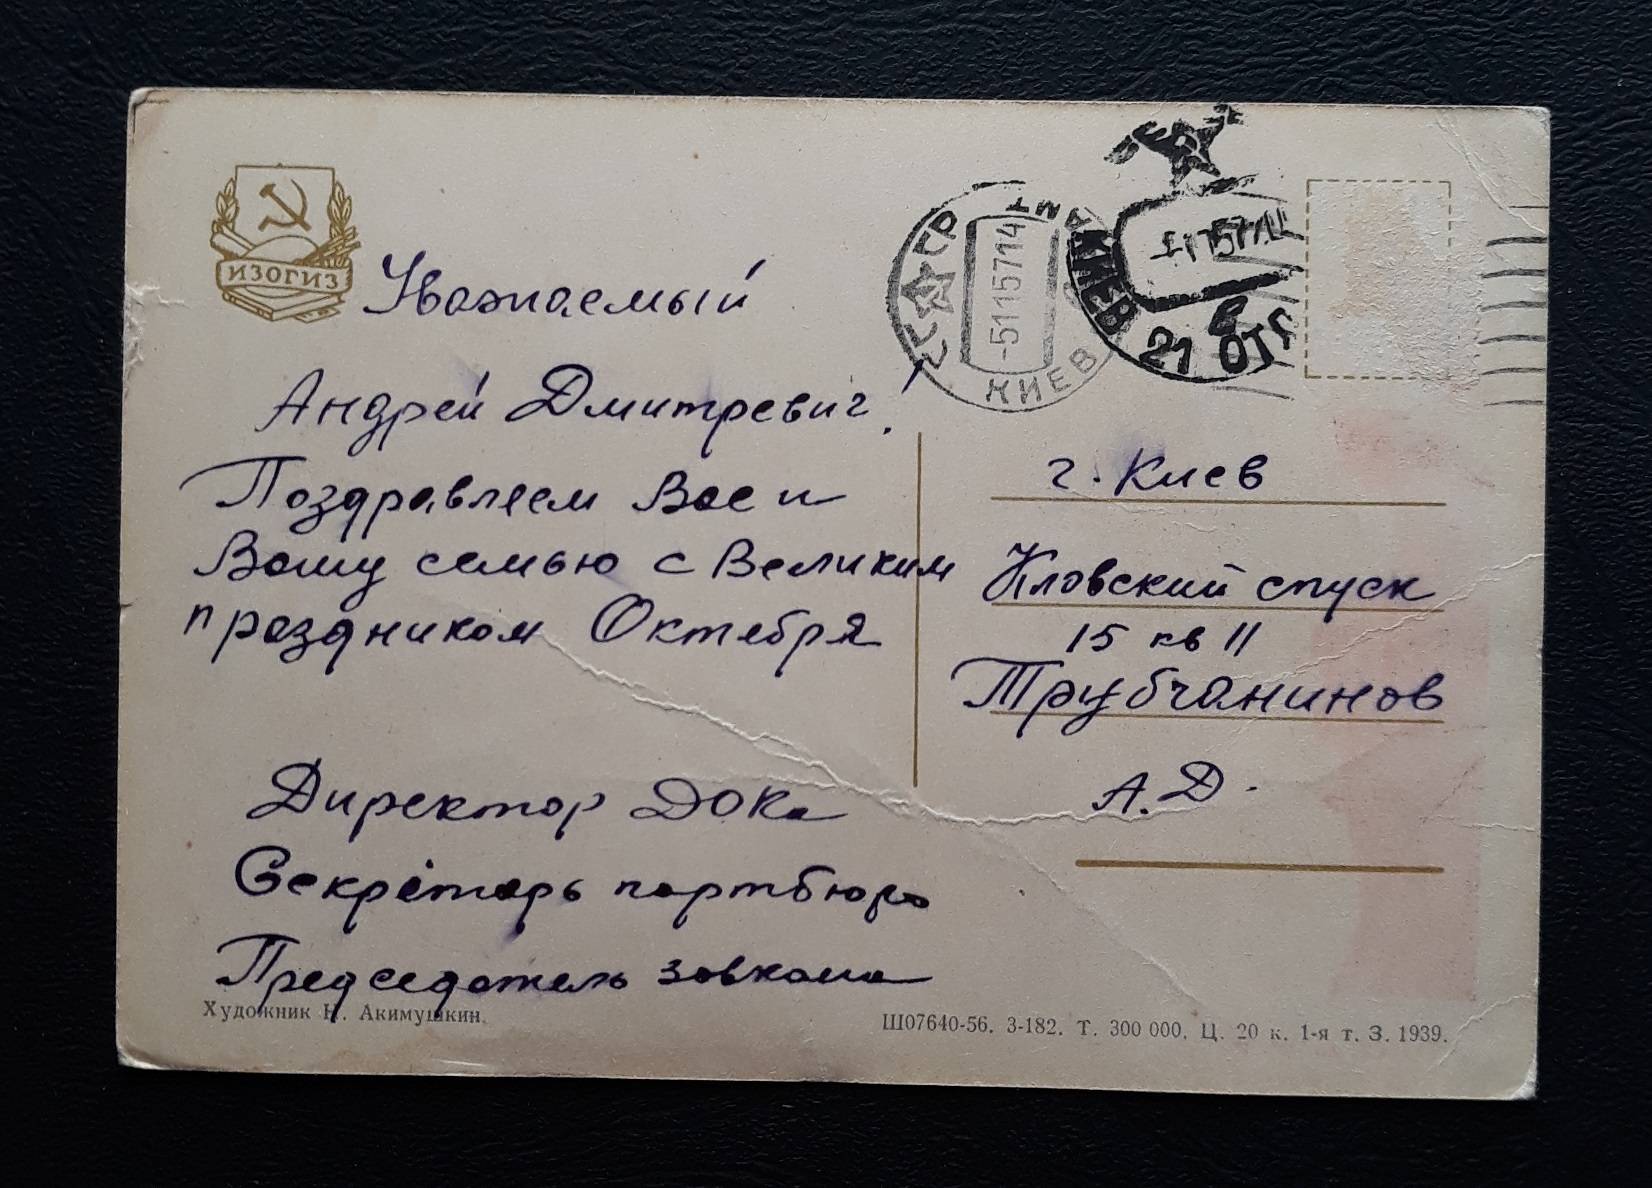 ИЗОГИЗ
Уважаемый
Андрей Дмитревич!
Поздравляем Вас и
Вашу семью с Великим
праздником Октября
Директор ДОКа
Секретарь партбюро
Председатель завкома
Художник Н. Акимушкин.
СССР
-5115714
КИЕВ
КИЕВ 21 ОТД
г. Киев
Кловский спуск
15 кв 11
Трубчанинов
А.Д.
Ш07640-56. З-182. Т. 300 000. Ц. 20 к. 1-я т. З. 1939.